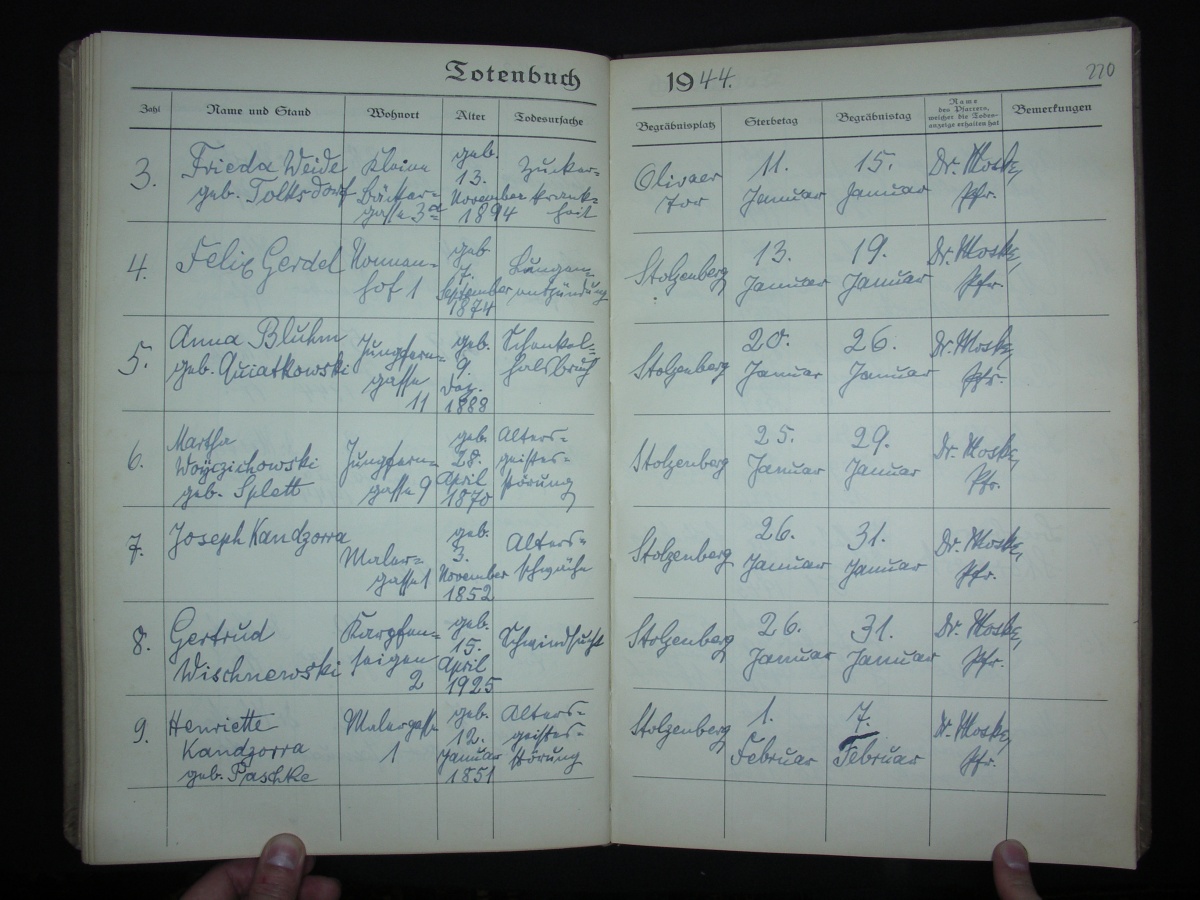 Totenbuch 1944.
270
Zahl Name und Stand Wohnort Alter Todesursache Begräbnisplatz Sterbetag Begräbnistag Name des Pfarrers, welcher die Todesanzeige erhalten hat Bemerkungen
3.
Frieda Weide
geb. Tolksdorf
Kleine
Bäcker-
gasse 3a
geb.
13.
November
1894
Zucker-
krank-
heit
Olivaer
Tor
11.
Januar
15.
Januar
Dr. Moske,
Pfr.
4.
Felix Gerdel
Nonnen-
hof 1
geb
7.
September
1874
Lungen-
entzündung
Stolzenberg
13.
Januar
19.
Januar
Dr. Moske,
Pfr.
5.
Anna Bluhm
geb. Quiatkowski
Jungfern-
gasse
11
geb.
9.
Dez.
1888
Schenkel-
halsbruch
Stolzenberg
20.
Januar
26.
Januar
Dr. Moske,
Pfr.
6.
Martha
Woyczichowski
geb. Splett
Jungfern-
gasse 9
geb.
28.
April
1870
Alters-
geistes-
störung
Stolzenberg
25.
Januar
29.
Januar
Dr. Moske,
Pfr.
7.
Joseph Kandzorra
Maler-
gasse 1
geb.
3.
November
1852
Alters-
schwäche
Stolzenberg
26.
Januar
31.
Januar
Dr. Moske,
Pfr.
8.
Gertrud
Wischnewski
Karpfen-
seigen
2
geb.
15.
April
1925
Schwindsucht
Stolzenberg
26.
Januar
31.
Januar
Dr. Moske,
Pfr.
9.
Henriette
Kandzorra
geb. Paschke
Malergasse
1
geb.
12.
Januar
1851
Alters-
geistes-
störung
Stolzenberg
1.
Februar
7.
Februar
Dr. Moske,
Pfr.